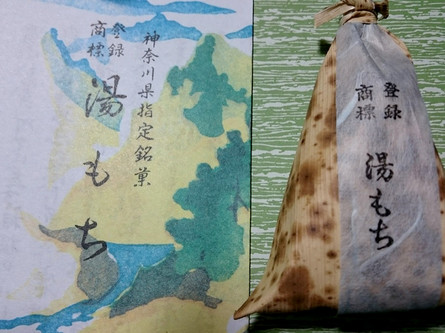 神奈川県指定銘菓
登録
商標
湯もち
登録
商標
湯もち